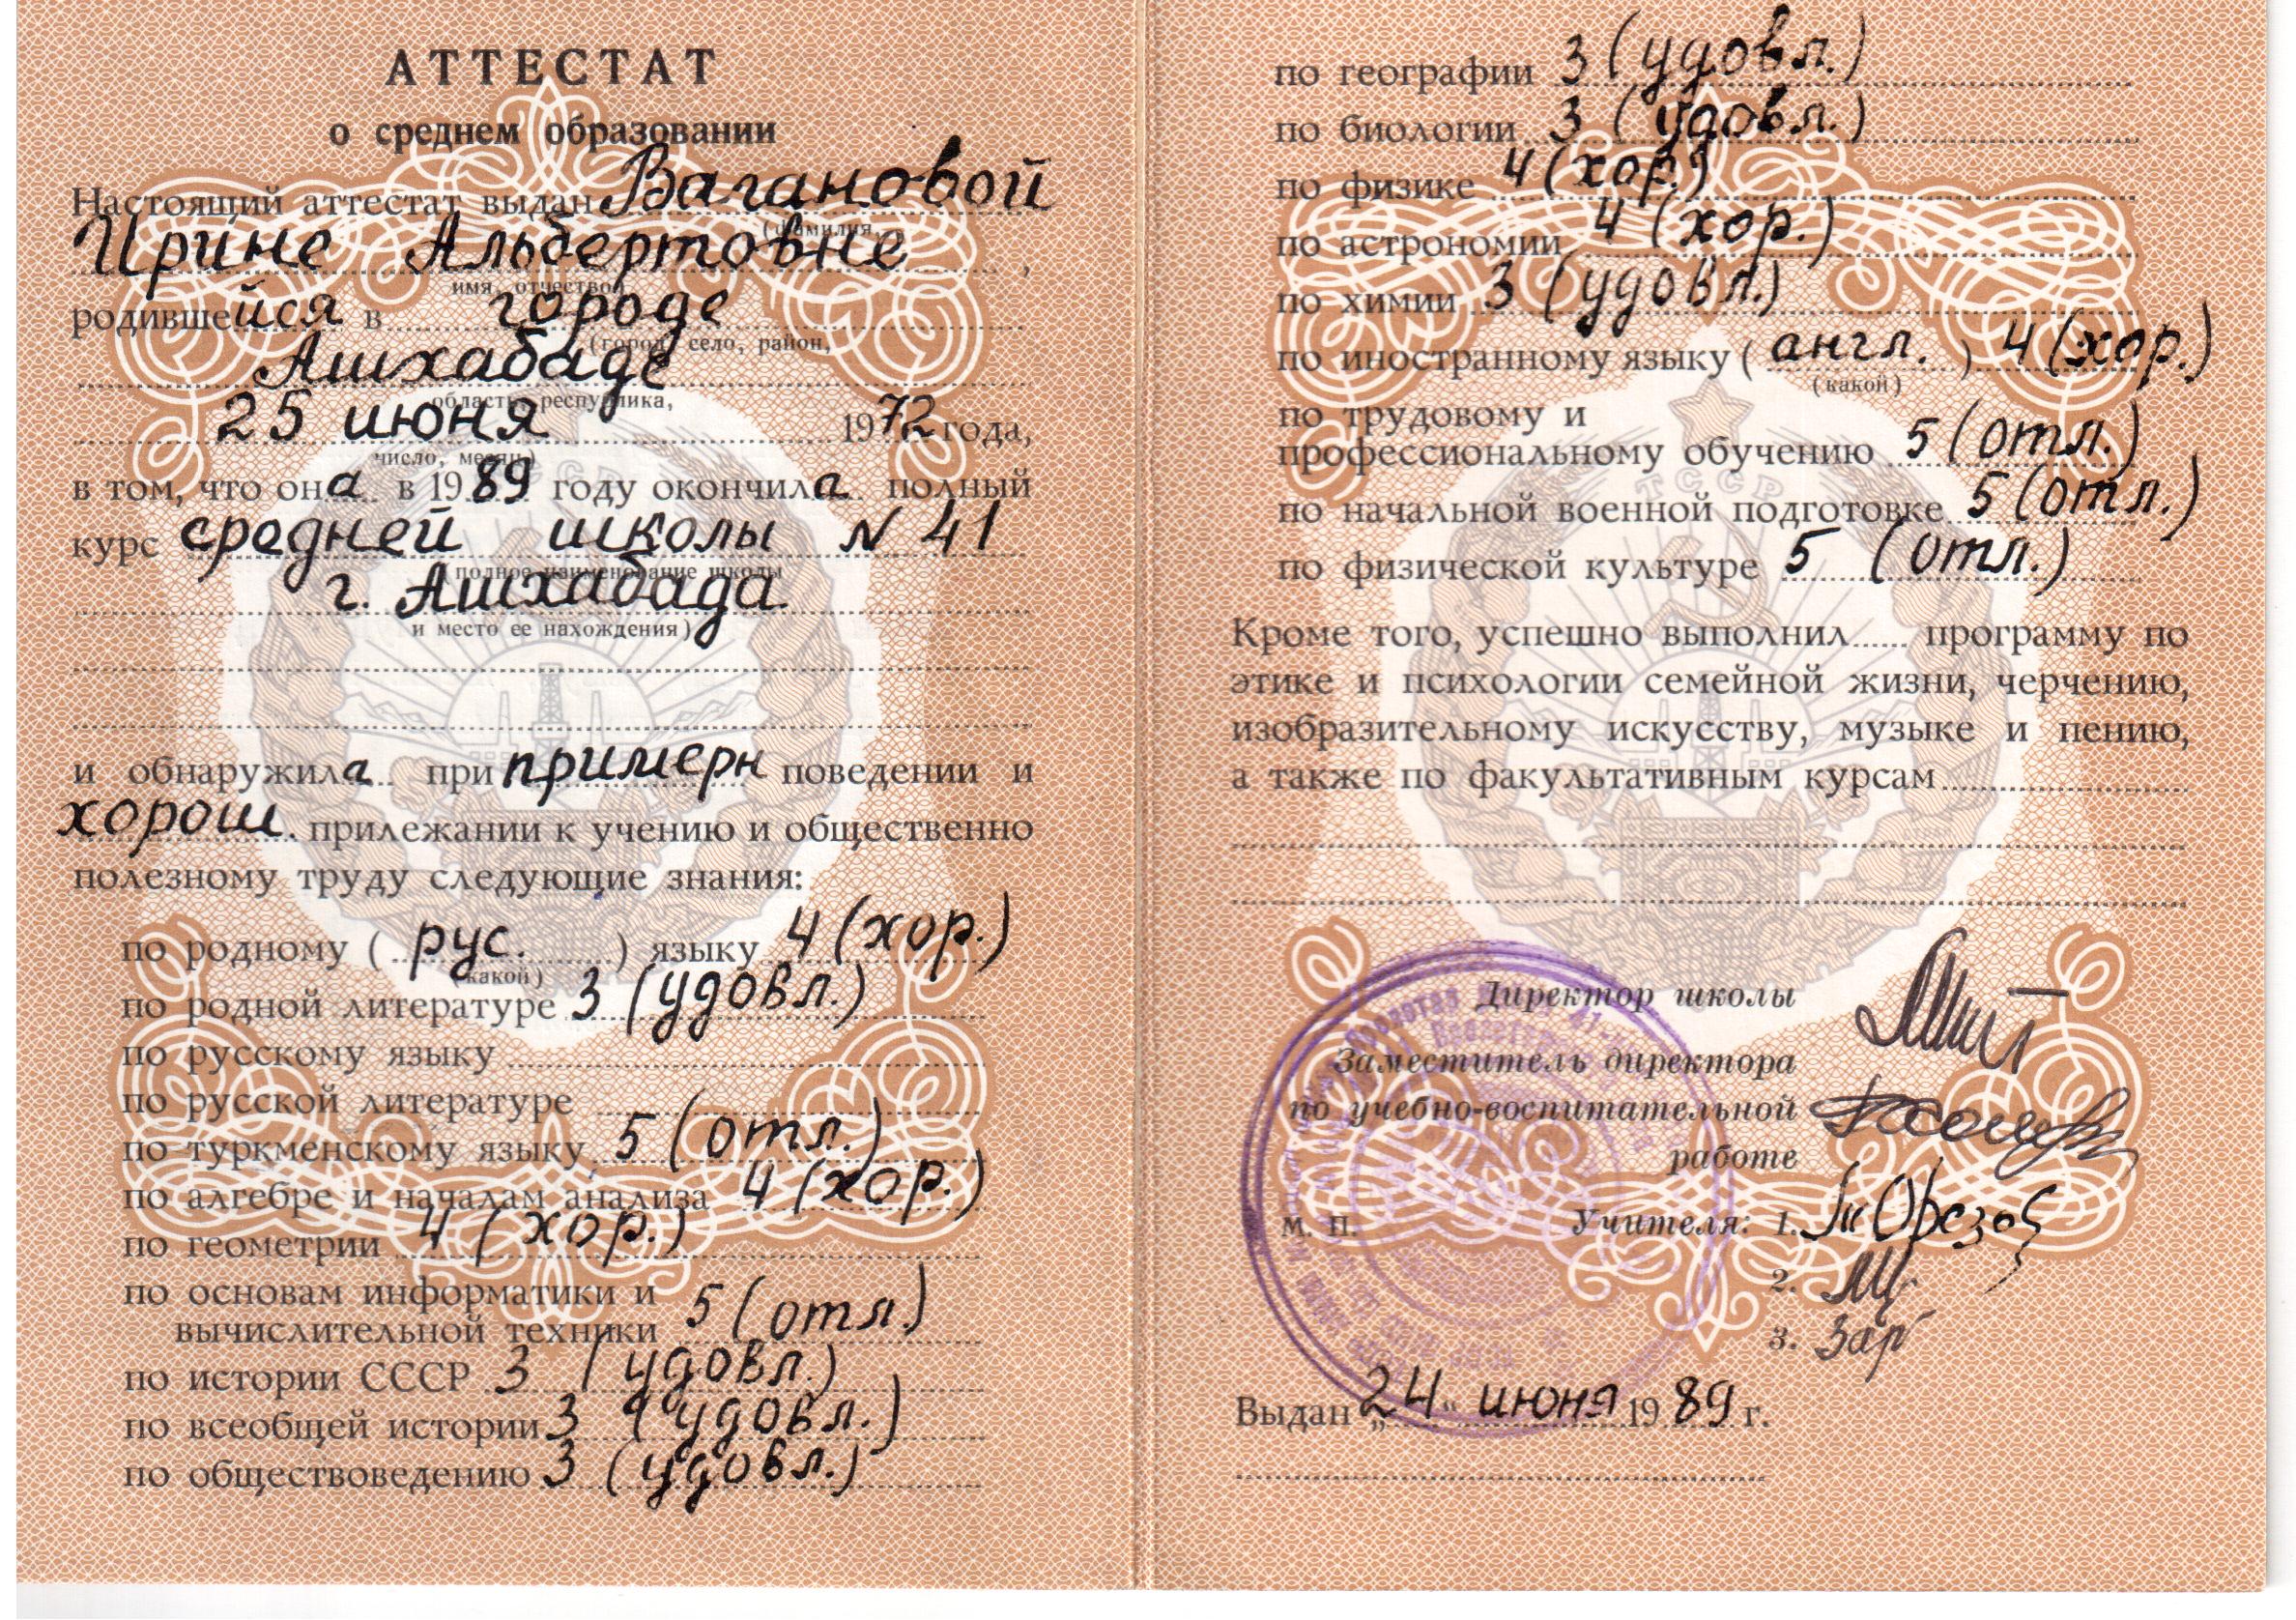 АТТЕСТАТ
о среднем образовании
Настоящий аттестат выдан Вагановой
(фамилия,
Ирине Альбертовне ,
имя, отчество)
родившейся в городе
(город, село, район,
Ашхабаде
область, республика,
25 июня 1972 года,
число, месяц)
в том, что она в 1989 году окончила полный
курс средней школы N 41
(полное наименование школы
г. Ашхабада
и место ее нахождения)
и обнаружила при примерн поведении и
хорош. прилежании к учению и общественно
полезному труду следующие знания:
по родному ( рус. ) языку 4 (хор.)
(какой)
по родной литературе 3 (удовл.)
по русскому языку
по русской литературе
по туркменскому языку 5 (отл.)
по алгебре и началам анализа 4 (хор.)
по геометрии 4 (хор.)
по основам информатики и
вычислительной техники 5 (отл.)
по истории СССР 3 (удовл.)
по всеобщей истории 3 (удовл.)
по обществоведению 3 (удовл.)
по географии 3 (удовл.)
по биологии 3 (удовл.)
по физике 4 (хор.)
по астрономии 4 (хор.)
по химии 3 (удовл.)
по иностранному языку ( англ. ) 4 (хор.)
(какой)
по трудовому и
профессиональному обучению 5 (отл.)
ТССР
по начальной военной подготовке 5 (отл.)
по физической культуре 5 (отл.)
Кроме того, успешно выполнил программу по
этике и психологии семейной жизни, черчению,
изобразительному искусству, музыке и пению,
а также по факультативным курсам
Директор школы
Заместитель директора
по учебно-воспитательной
работе
м. п. Учителя: 1.
2.
3. Зар
Выдан „24“ июня 1989 г.